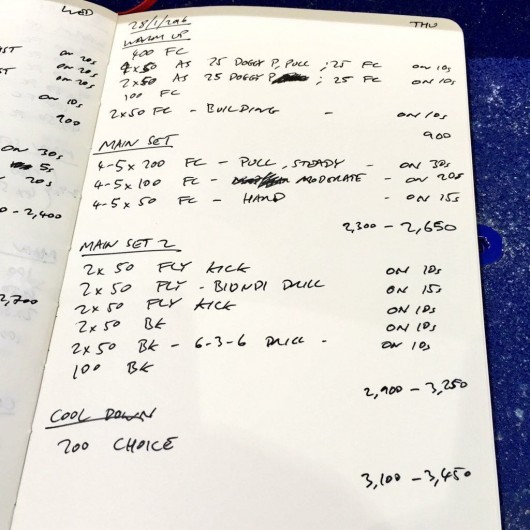 WED
AST
ON 20s
ST
ON 20s
ON 20s
ON 10s
900
ON 30s
5s
20s
0 - 2,400
2,700
THU
28/1/2016
WARM UP
400 FC
4x50 AS 25 DOGGY P, PULL ; 25 FC ON 10s
2x50 AS 25 DOGGY P ; 25 FC ON 10s
100 FC
2x50 FC - BUILDING - ON 10s
900
MAIN SET
4-5x200 FC - PULL, STEADY - ON 30s
4-5x100 FC - MODERATE - ON 20s
4-5x50 FC - HARD - ON 15s
2,300 - 2,650
MAIN SET 2
2x50 FLY KICK ON 10s
2x50 FLY - BIONDI DRILL ON 15s
2x50 FLY KICK ON 10s
2x50 BK ON 10s
2x50 BK - 6-3-6 DRILL - ON 10s
100 BK
2,900 - 3,250
COOL DOWN
200 CHOICE
3,100 - 3,450